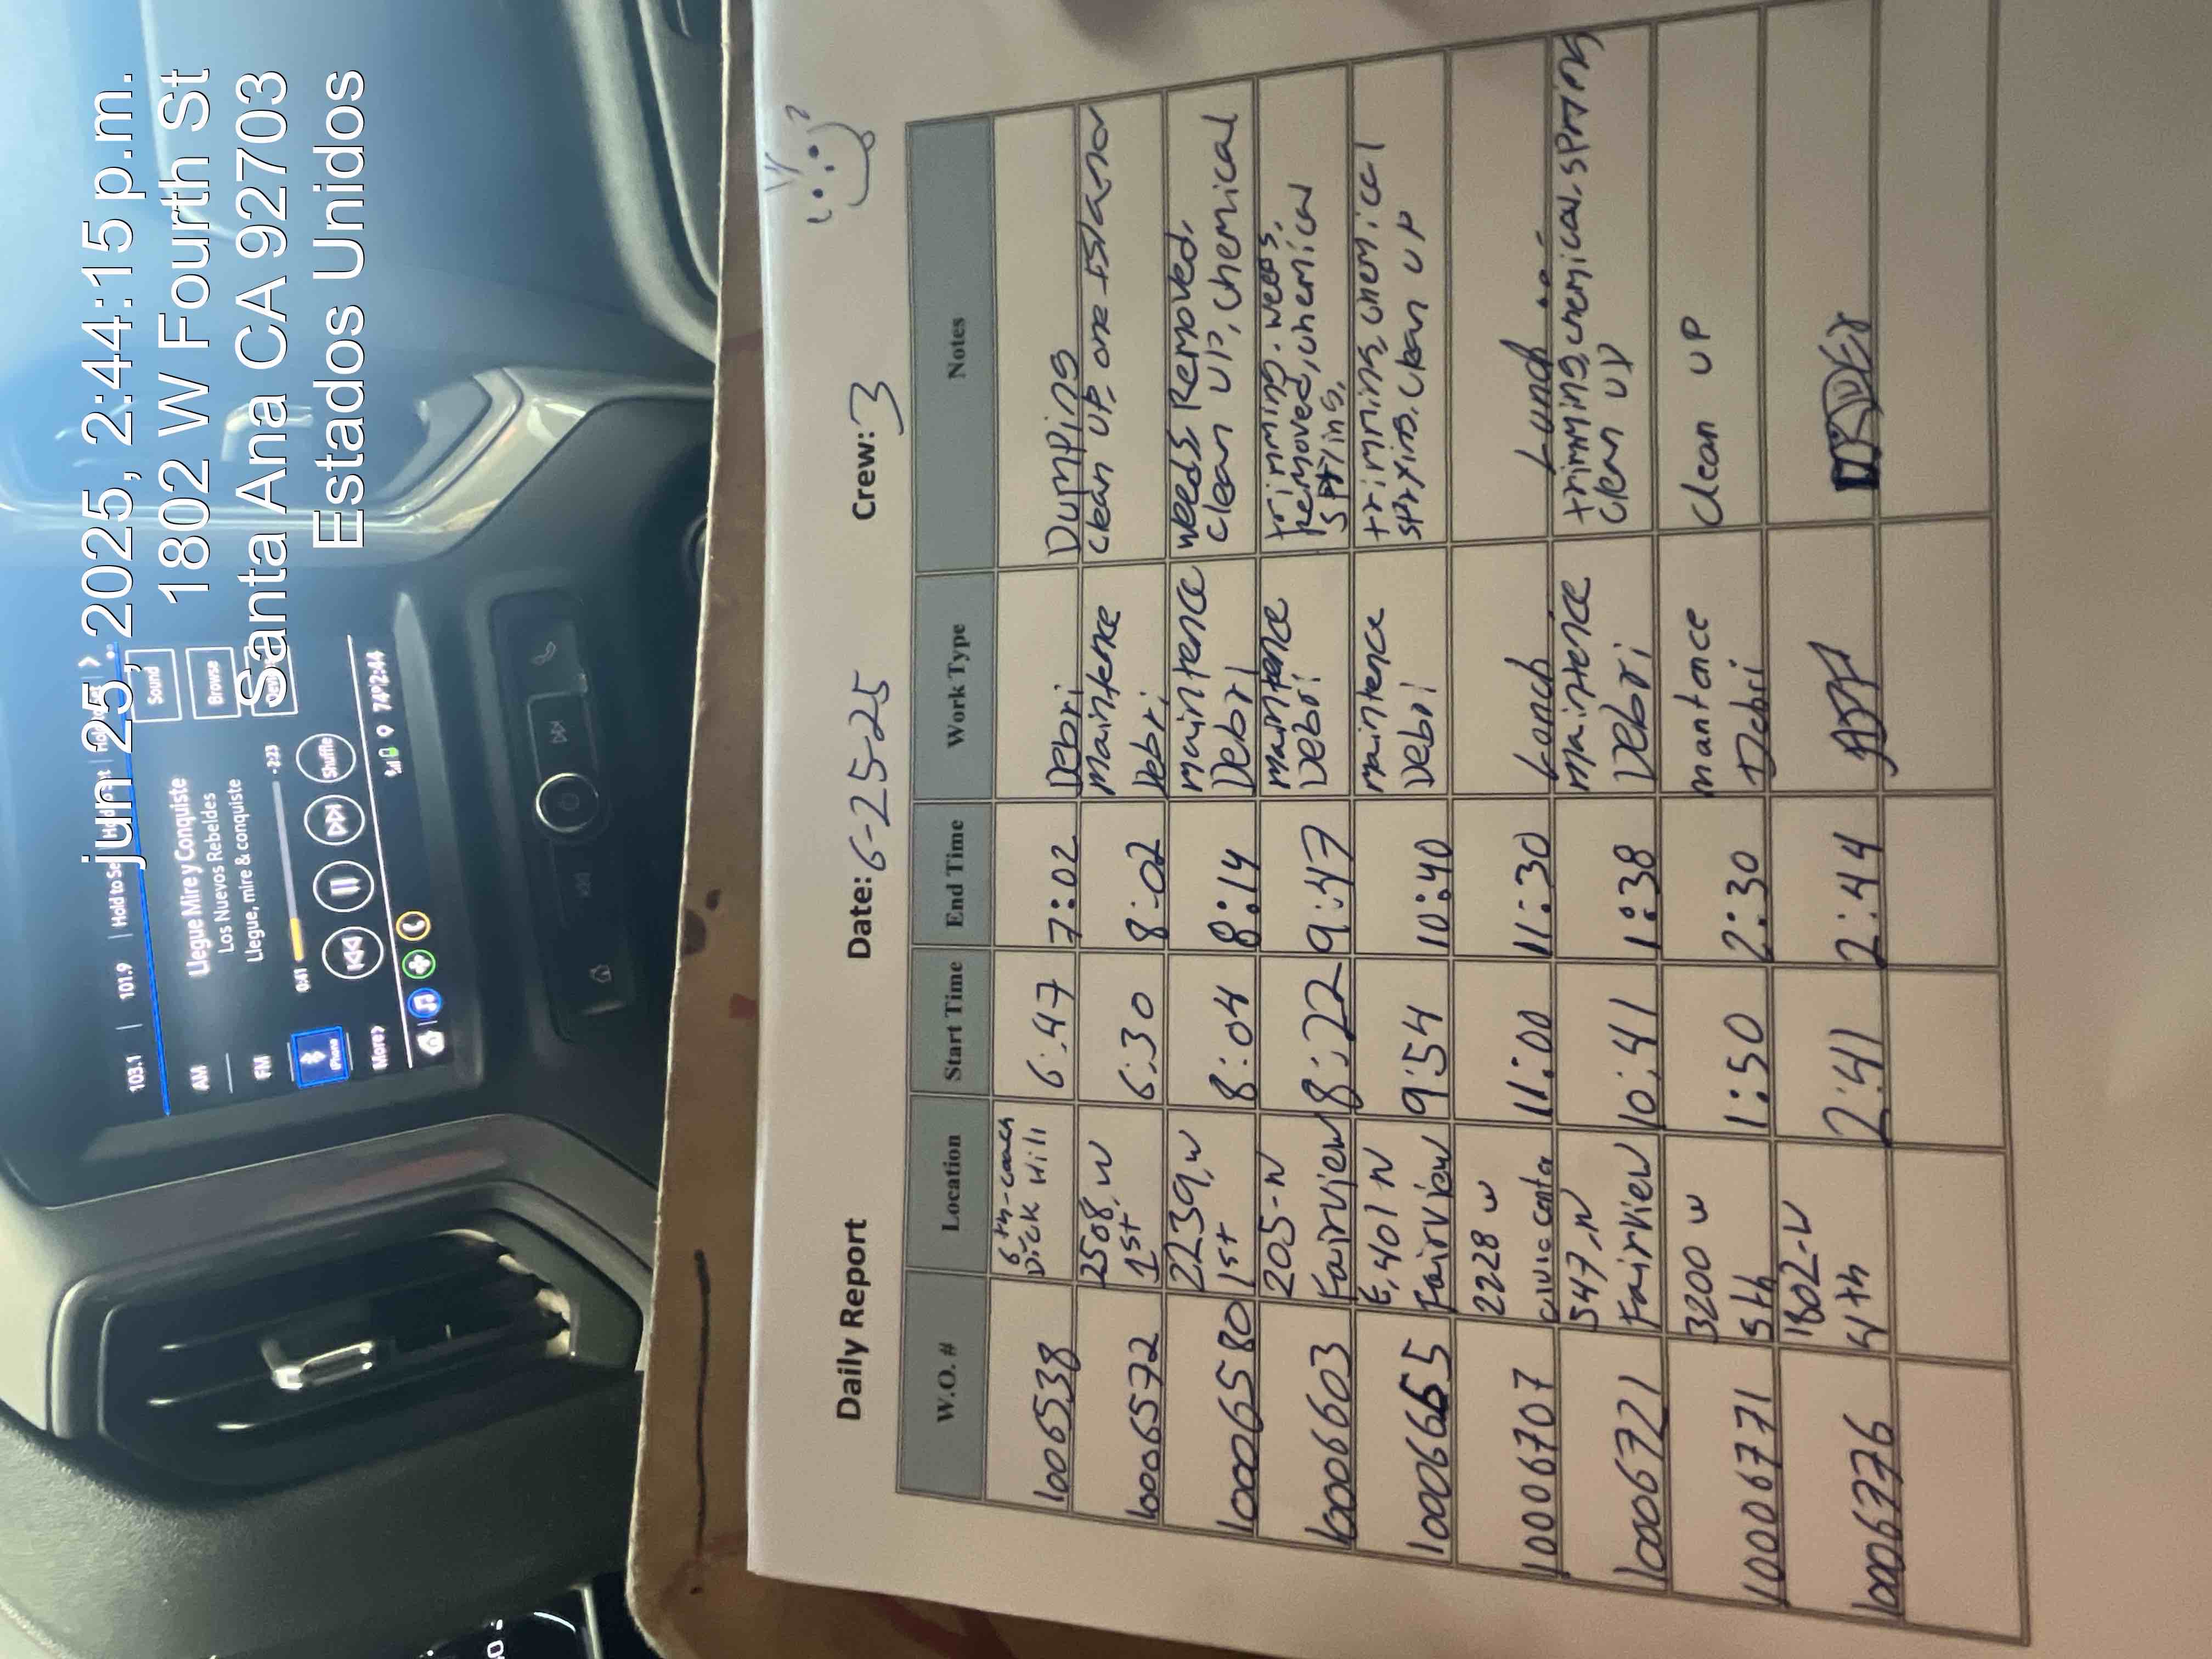 jun 25, 2025, 2:44:15 p.m.
1802 W Fourth St
Santa Ana CA 92703
Estados Unidos
103.1 | 101.9 | Hold to Set
AM
FM
iPhone
More>
Llegue Mire y Conquiste
Los Nuevos Rebeldes
Llegue, mire & conquiste
0:41 -2:23
Shuffle
Sound
Browse
74° 2:44
Daily Report Date: 6-25-25 Crew: 3
W.O. # Location Start Time End Time Work Type Notes
1006538 6th- Dick Hill 6:47 7:02 Debri Dumping
1006572 2508, W 1st 6:30 8:02 Maintence Debri clean up, one Island
10006580 2239, W 1st 8:04 8:14 maintence Debri weeds Removed. clean up, chemical
1006603 205-N Fairview 8:22 9:47 maintence Debri trimming. weeds. Removed, chemical
1006665 E, 401 N Fairview 9:54 10:40 maintence Debri trimming, chemical clean up
1006707 2228 W civic center 11:00 11:30 Lonch Lunch
1006721 547, N Fairview 10:41 1:38 maintence Debri trimming, chemical. clean up
1006771 3200 W 5th 1:50 2:30 mantance Debri clean up
1006776 1802-W 4th 2:41 2:44